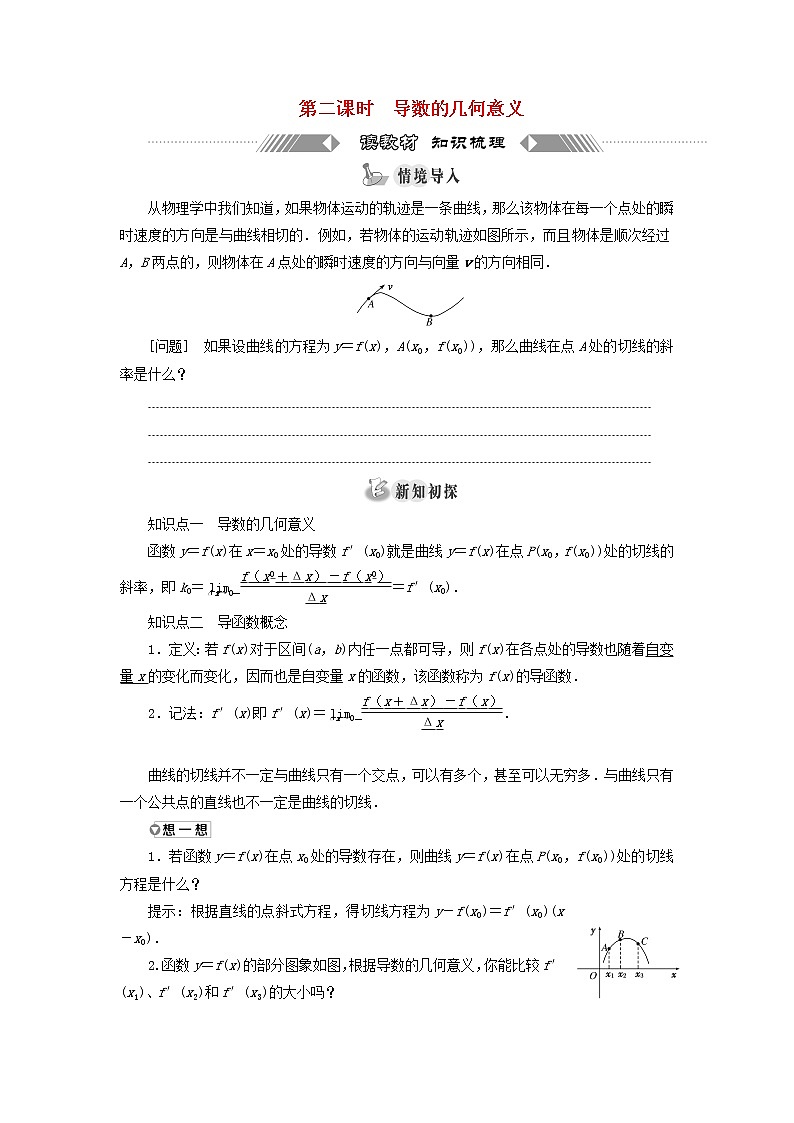 第二课时　导数的几何意义
读教材 知识梳理
情境导入
从物理学中我们知道,如果物体运动的轨迹是一条曲线,那么该物体在每一个点处的瞬
时速度的方向是与曲线相切的．例如,若物体的运动轨迹如图所示,而且物体是顺次经过
A,B两点的,则物体在A点处的瞬时速度的方向与向量v的方向相同．
v
A
B
[问题]　如果设曲线的方程为y＝f(x),A(x₀,f(x₀)),那么曲线在点A处的切线的斜
率是什么？
新知初探
知识点一　导数的几何意义
函数y＝f(x)在x＝x₀处的导数f′(x₀)就是曲线y＝f(x)在点P(x₀,f(x₀))处的切线的
斜率,即k₀＝lim₀ f(x⁰＋Δx)－f(x⁰)／Δx＝f′(x₀)．
知识点二　导函数概念
1．定义:若f(x)对于区间(a,b)内任一点都可导,则f(x)在各点处的导数也随着自变
量x的变化而变化,因而也是自变量x的函数,该函数称为f(x)的导函数．
2．记法:f′(x)即f′(x)＝lim₀ f(x＋Δx)－f(x)／Δx．
曲线的切线并不一定与曲线只有一个交点,可以有多个,甚至可以无穷多．与曲线只有
一个公共点的直线也不一定是曲线的切线．
想一想
1．若函数y＝f(x)在点x₀处的导数存在,则曲线y＝f(x)在点P(x₀,f(x₀))处的切线
方程是什么？
提示:根据直线的点斜式方程,得切线方程为y－f(x₀)＝f′(x₀)(x
－x₀)．
2.函数y＝f(x)的部分图象如图,根据导数的几何意义,你能比较f′
(x₁)、f′(x₂)和f′(x₃)的大小吗？
y
A B C
O x₁ x₂ x₃ x